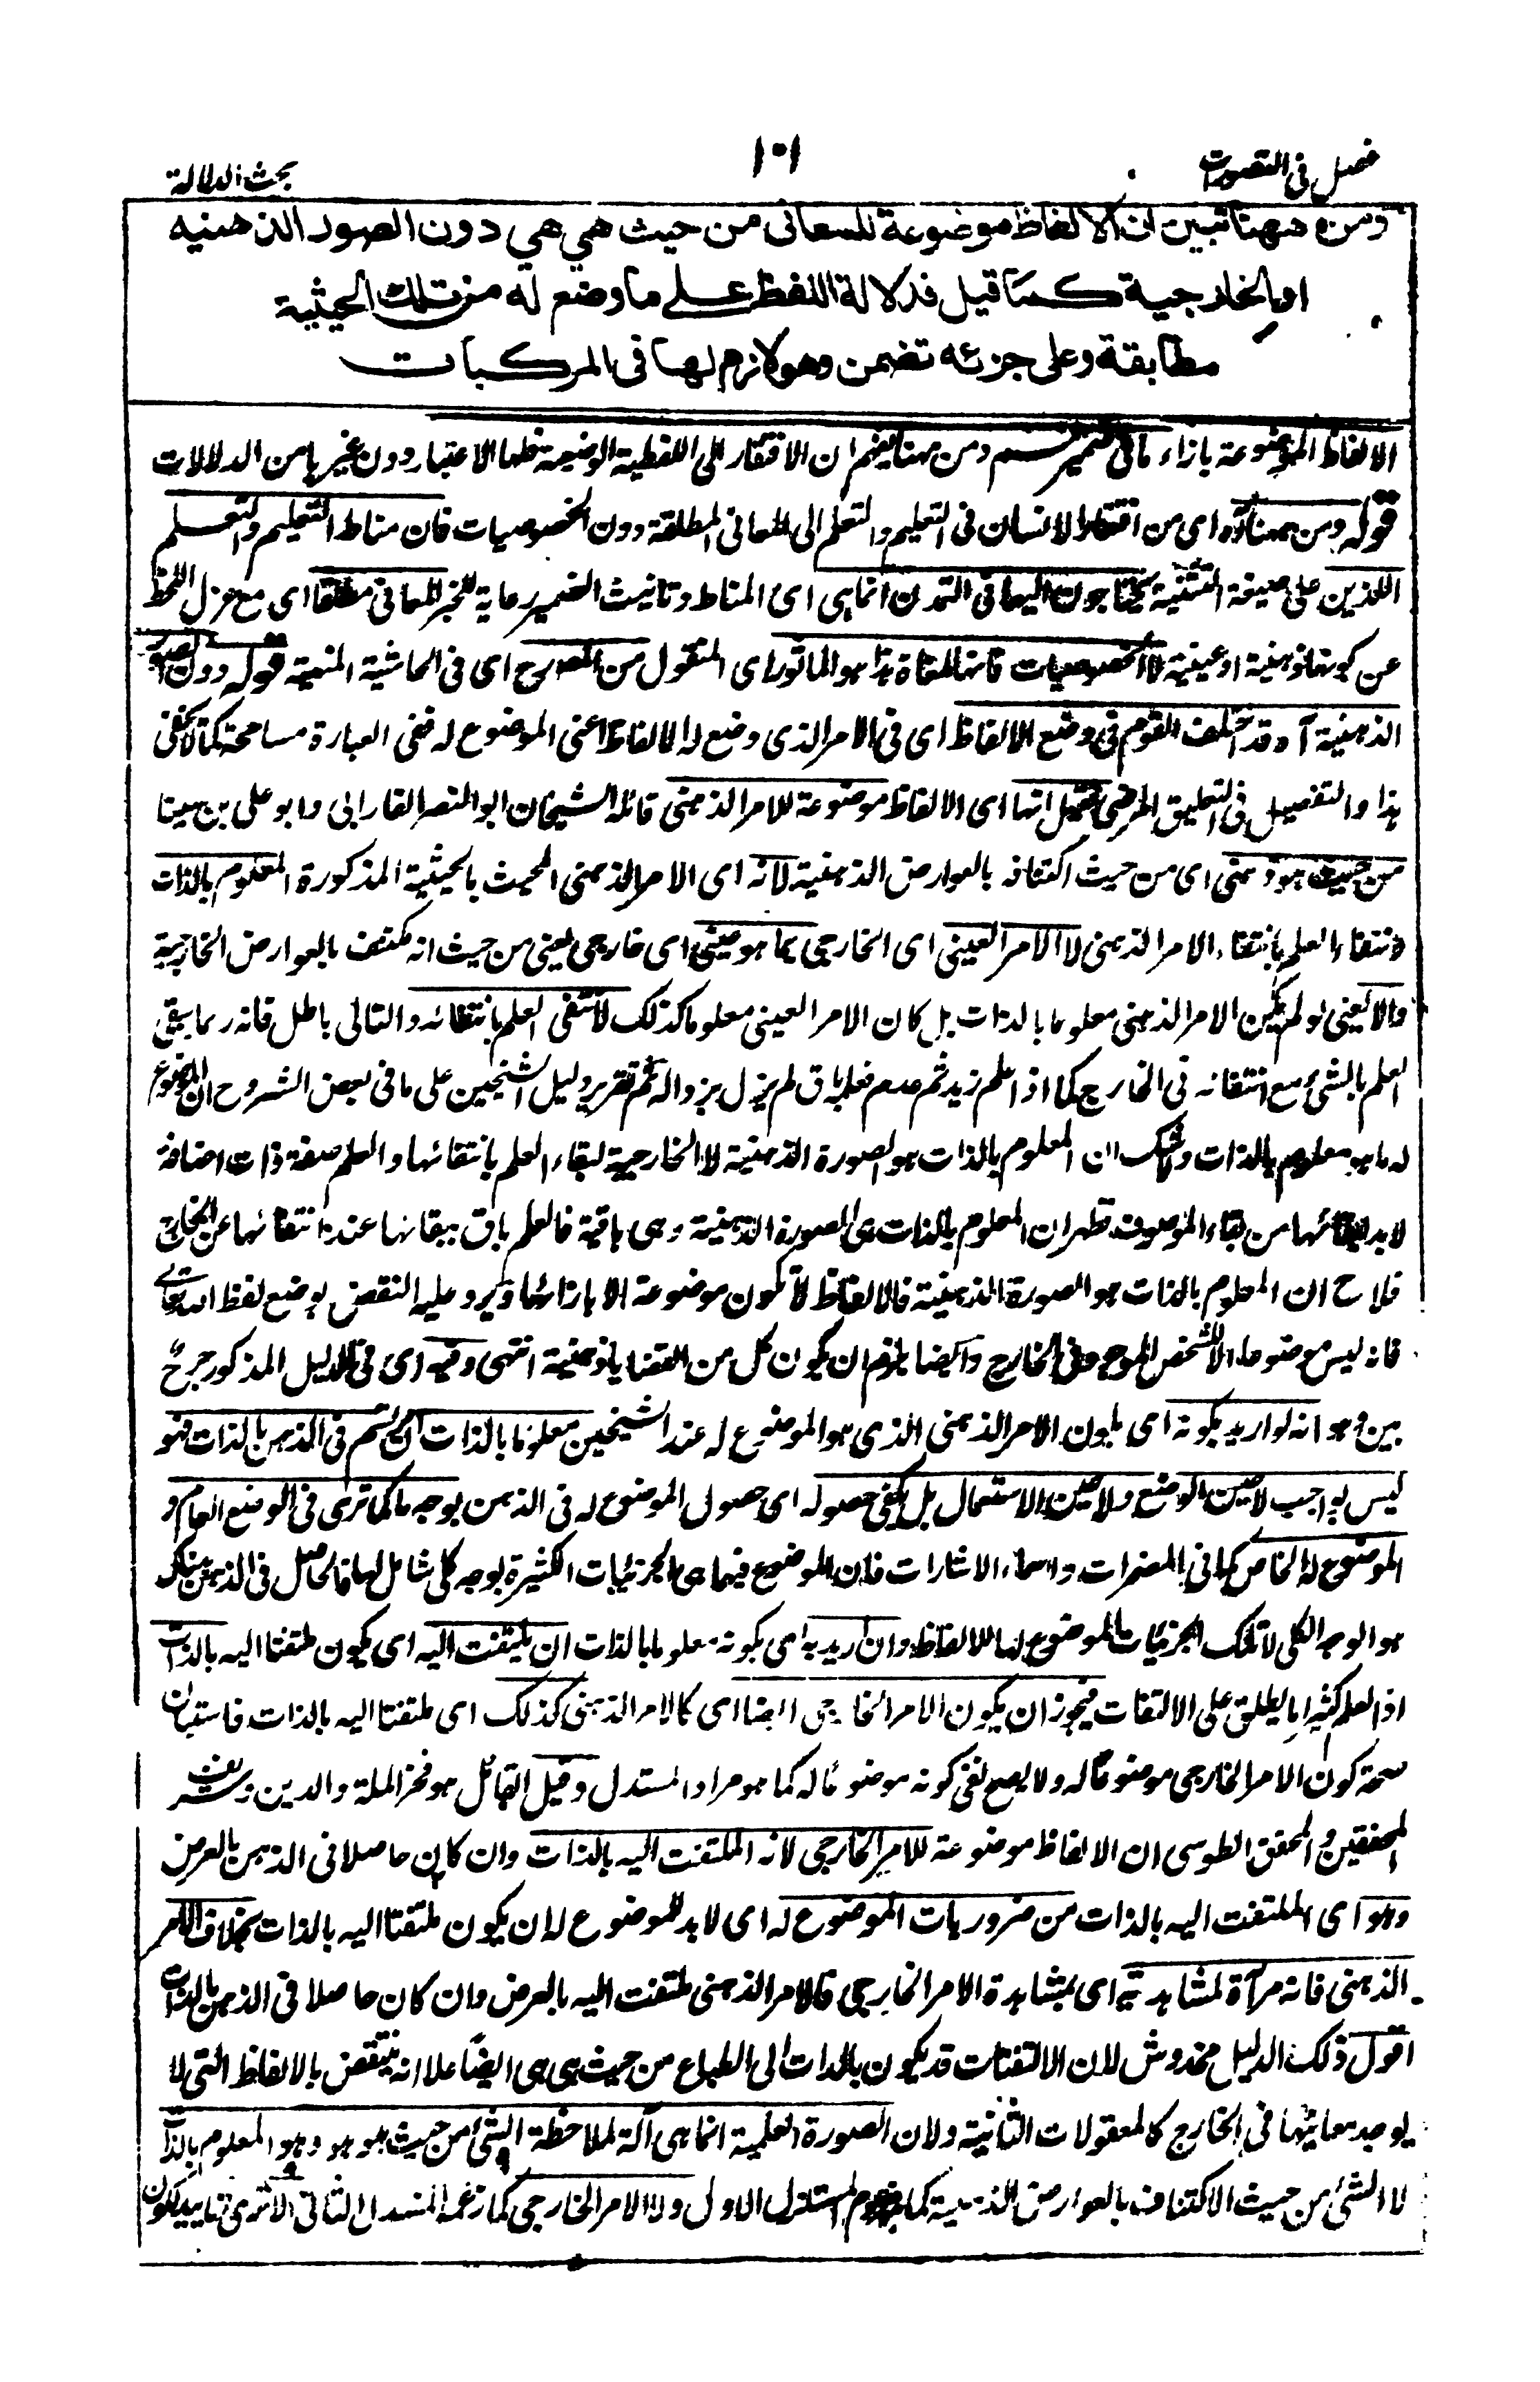 فصل في التصورات
١٠١
بحث الدلالة
ومن ههنا تبين ان الالفاظ موضوعة للمعانى من حيث هي هي دون الصور الذهنيه
او الخارجية كما قيل فدلالة اللفظ على ما وضع له من تلك الحيثية
مطابقة وعلى جزئه تضمن وهو لازم لها فى المركبات
الالفاظ الموضوعة بازاء ما فى ضميرهم ومن ههنا يفهم ان الافتقار الى اللفظية الوضعية فلها الاعتبار دون غيرها من الدلالات
قوله ومن ههنا آه اى من افتقار الانسان فى التعليم والتعلم الى المعانى المطلقة دون الخصوصيات فان مناط التعليم والتعلم
اللذين على صيغة التثنية يحتاجون اليهما فى التمدن انما هى اى المناط وتانيث الضمير رعاية للخبر المعانى مطلقا اى مع عزل اللحظ
عن كونها ذهنية او عينية لا الخصوصيات فانها ملغاة هذا هو الماثور اى المنقول من المصرح اى فى الحاشية المنهية قوله دون الصور
الذهنية آه قد اختلف القوم فى وضع الالفاظ اى فى الامر الذى وضع له الالفاظ اعنى الموضوع له ففى العبارة مسامحة كما لا يخفى
هذا والتفصيل فى التعليق المرضى فقيل انها اى الالفاظ موضوعة للامر الذهنى قائله الشيخان ابو النصر الفارابى وابو على بن سينا
من حيث هو ذهنى اى من حيث اكتنافه بالعوارض الذهنية لانه اى الامر الذهنى المحيث بالحيثية المذكورة المعلوم بالذات
لانتفاء العلم بانتفاء الامر الذهنى لا الامر العينى اى الخارجى بما هو عينى اى خارجى يعنى من حيث انه مكتنف بالعوارض الخارجية
والا يعنى لو لم يكن الامر الذهنى معلوما بالذات بل كان الامر العينى معلوما كذلك لانتفى العلم بانتفائه والتالى باطل فانه ربما يبقى
العلم بالشئ مع انتفائه فى الخارج كما اذا علم زيد ثم عدم فعلمه باق لم يزل بزواله ثم تقرير دليل الشيخين على ما فى بعض الشروح ان الموضوع
له ما هو معلوم بالذات ولا شك ان المعلوم بالذات هو الصورة الذهنية لا الخارجية لبقاء العلم بانتفائها والعلم صفة ذات اضافة
لا بد لبقائها من بقاء الموصوف فظهر ان المعلوم بالذات هى الصورة الذهنية وهى باقية فالعلم باق ببقائها عند انتفائها عن الخارج
فلاح ان المعلوم بالذات هو الصورة الذهنية فالالفاظ لا تكون موضوعة الا بازائها ويرد عليه النقض بوضع لفظ الله تعالى
فانه ليس موضوعا الا للشخص الموجود فى الخارج وايضا يلزم ان يكون كل من القضايا ذهنية انتهى وفيه اى فى الدليل المذكور جرح
بين وهو انه لو اريد بكونه اى بكون الامر الذهنى الذى هو الموضوع له عند الشيخين معلوما بالذات ان يرتسم فى الذهن بالذات فهو
ليس بواجب لا حين الوضع ولا حين الاستعمال بل يكفى حصوله اى حصول الموضوع له فى الذهن بوجه ما كما ترى فى الوضع العام و
الموضوع له الخاص كما فى المضمرات واسماء الاشارات فان الموضوع فيها هى الجزئيات الكثيرة بوجه كلى شامل لها فالحاصل فى الذهن هناك
هو الوجه الكلى لا تلك الجزئيات الموضوع لها الالفاظ وان اريد به اى بكونه معلوما بالذات ان يلتفت اليه اى يكون ملتفتا اليه بالذات
اذ العلم كثيرا ما يطلق على الالتفات فيجوز ان يكون الامر الخارجى ايضا اى كالامر الذهنى كذلك اى ملتفتا اليه بالذات فاستبان
صحة كون الامر الخارجى موضوعا له ولا يصح نفى كونه موضوعا له كما هو مراد المستدل وقيل القائل هو فخر الملة والدين وشريف
المحققين والمحقق الطوسى ان الالفاظ موضوعة للامر الخارجى لانه الملتفت اليه بالذات وان كان حاصلا فى الذهن بالعرض
وهو اى الملتفت اليه بالذات من ضروريات الموضوع له اى لا بد للموضوع له ان يكون ملتفتا اليه بالذات بخلاف الامر
الذهنى فانه مرآة لمشاهدته اى بمشاهدة الامر الخارجى فالامر الذهنى ملتفت اليه بالعرض وان كان حاصلا فى الذهن بالذات
اقول ذلك الدليل مخدوش لان الالتفات قد يكون بالذات الى الطباع من حيث هى هى ايضا علا انه منتقض بالالفاظ التى لا
يوجد معانيها فى الخارج كالمعقولات الثانية ولان الصورة العلمية انما هى آلة لملاحظة الشئ من حيث هو هو وهو المعلوم بالذات
لا الشئ من حيث الاكتناف بالعوارض الذهنية كما المستدل الاول ولا الامر الخارجى كما زعمه المستدل الثانى الا ترى